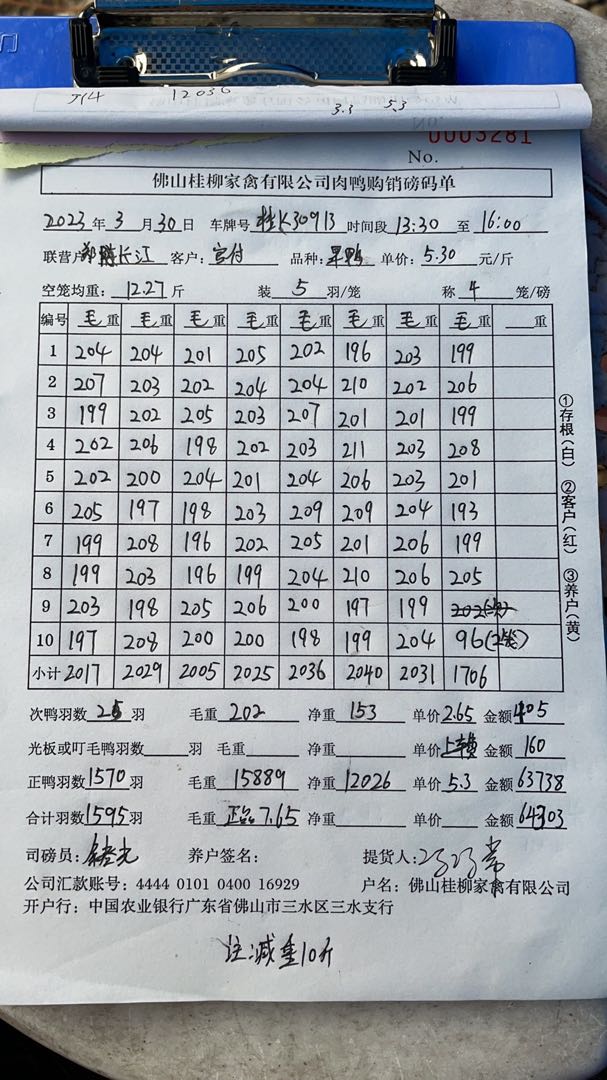 12036
3.3 5.3
0003281
No.
佛山桂柳家禽有限公司肉鸭购销磅码单
2023年3月30日 车牌号桂K30913 时间段13:30至16:00
联营户 长江 客户： 品种： 单价：5.30元/斤
空笼均重：12.27斤 装5羽/笼 称4笼/磅
编号 毛重 毛重 毛重 毛重 毛重 毛重 毛重 毛重 重
1 204 204 201 205 202 196 203 199
2 207 203 202 204 204 210 202 206
3 199 202 205 203 207 201 201 199
4 202 206 198 202 203 211 203 208
5 202 200 204 201 204 206 203 201
6 205 197 198 203 209 209 204 193
7 199 208 196 202 205 201 206 199
8 199 203 196 199 204 210 206 205
9 203 198 205 206 200 197 199 202
10 197 208 200 200 198 199 204 96(2笼)
小计 2017 2029 2005 2025 2036 2040 2031 1706
次鸭羽数25羽 毛重202 净重153 单价2.65 金额405
光板或叮毛鸭羽数 羽 毛重 净重 单价 金额160
正鸭羽数1570羽 毛重15889 净重12026 单价5.3 金额63738
合计羽数1595羽 毛重正品7.65 净重 单价 金额64303
司磅员： 养户签名： 提货人：
公司汇款账号：4444 0101 0400 16929 户名：佛山桂柳家禽有限公司
开户行：中国农业银行广东省佛山市三水区三水支行
注：减重10斤
①存根（白） ②客户（红） ③养户（黄）